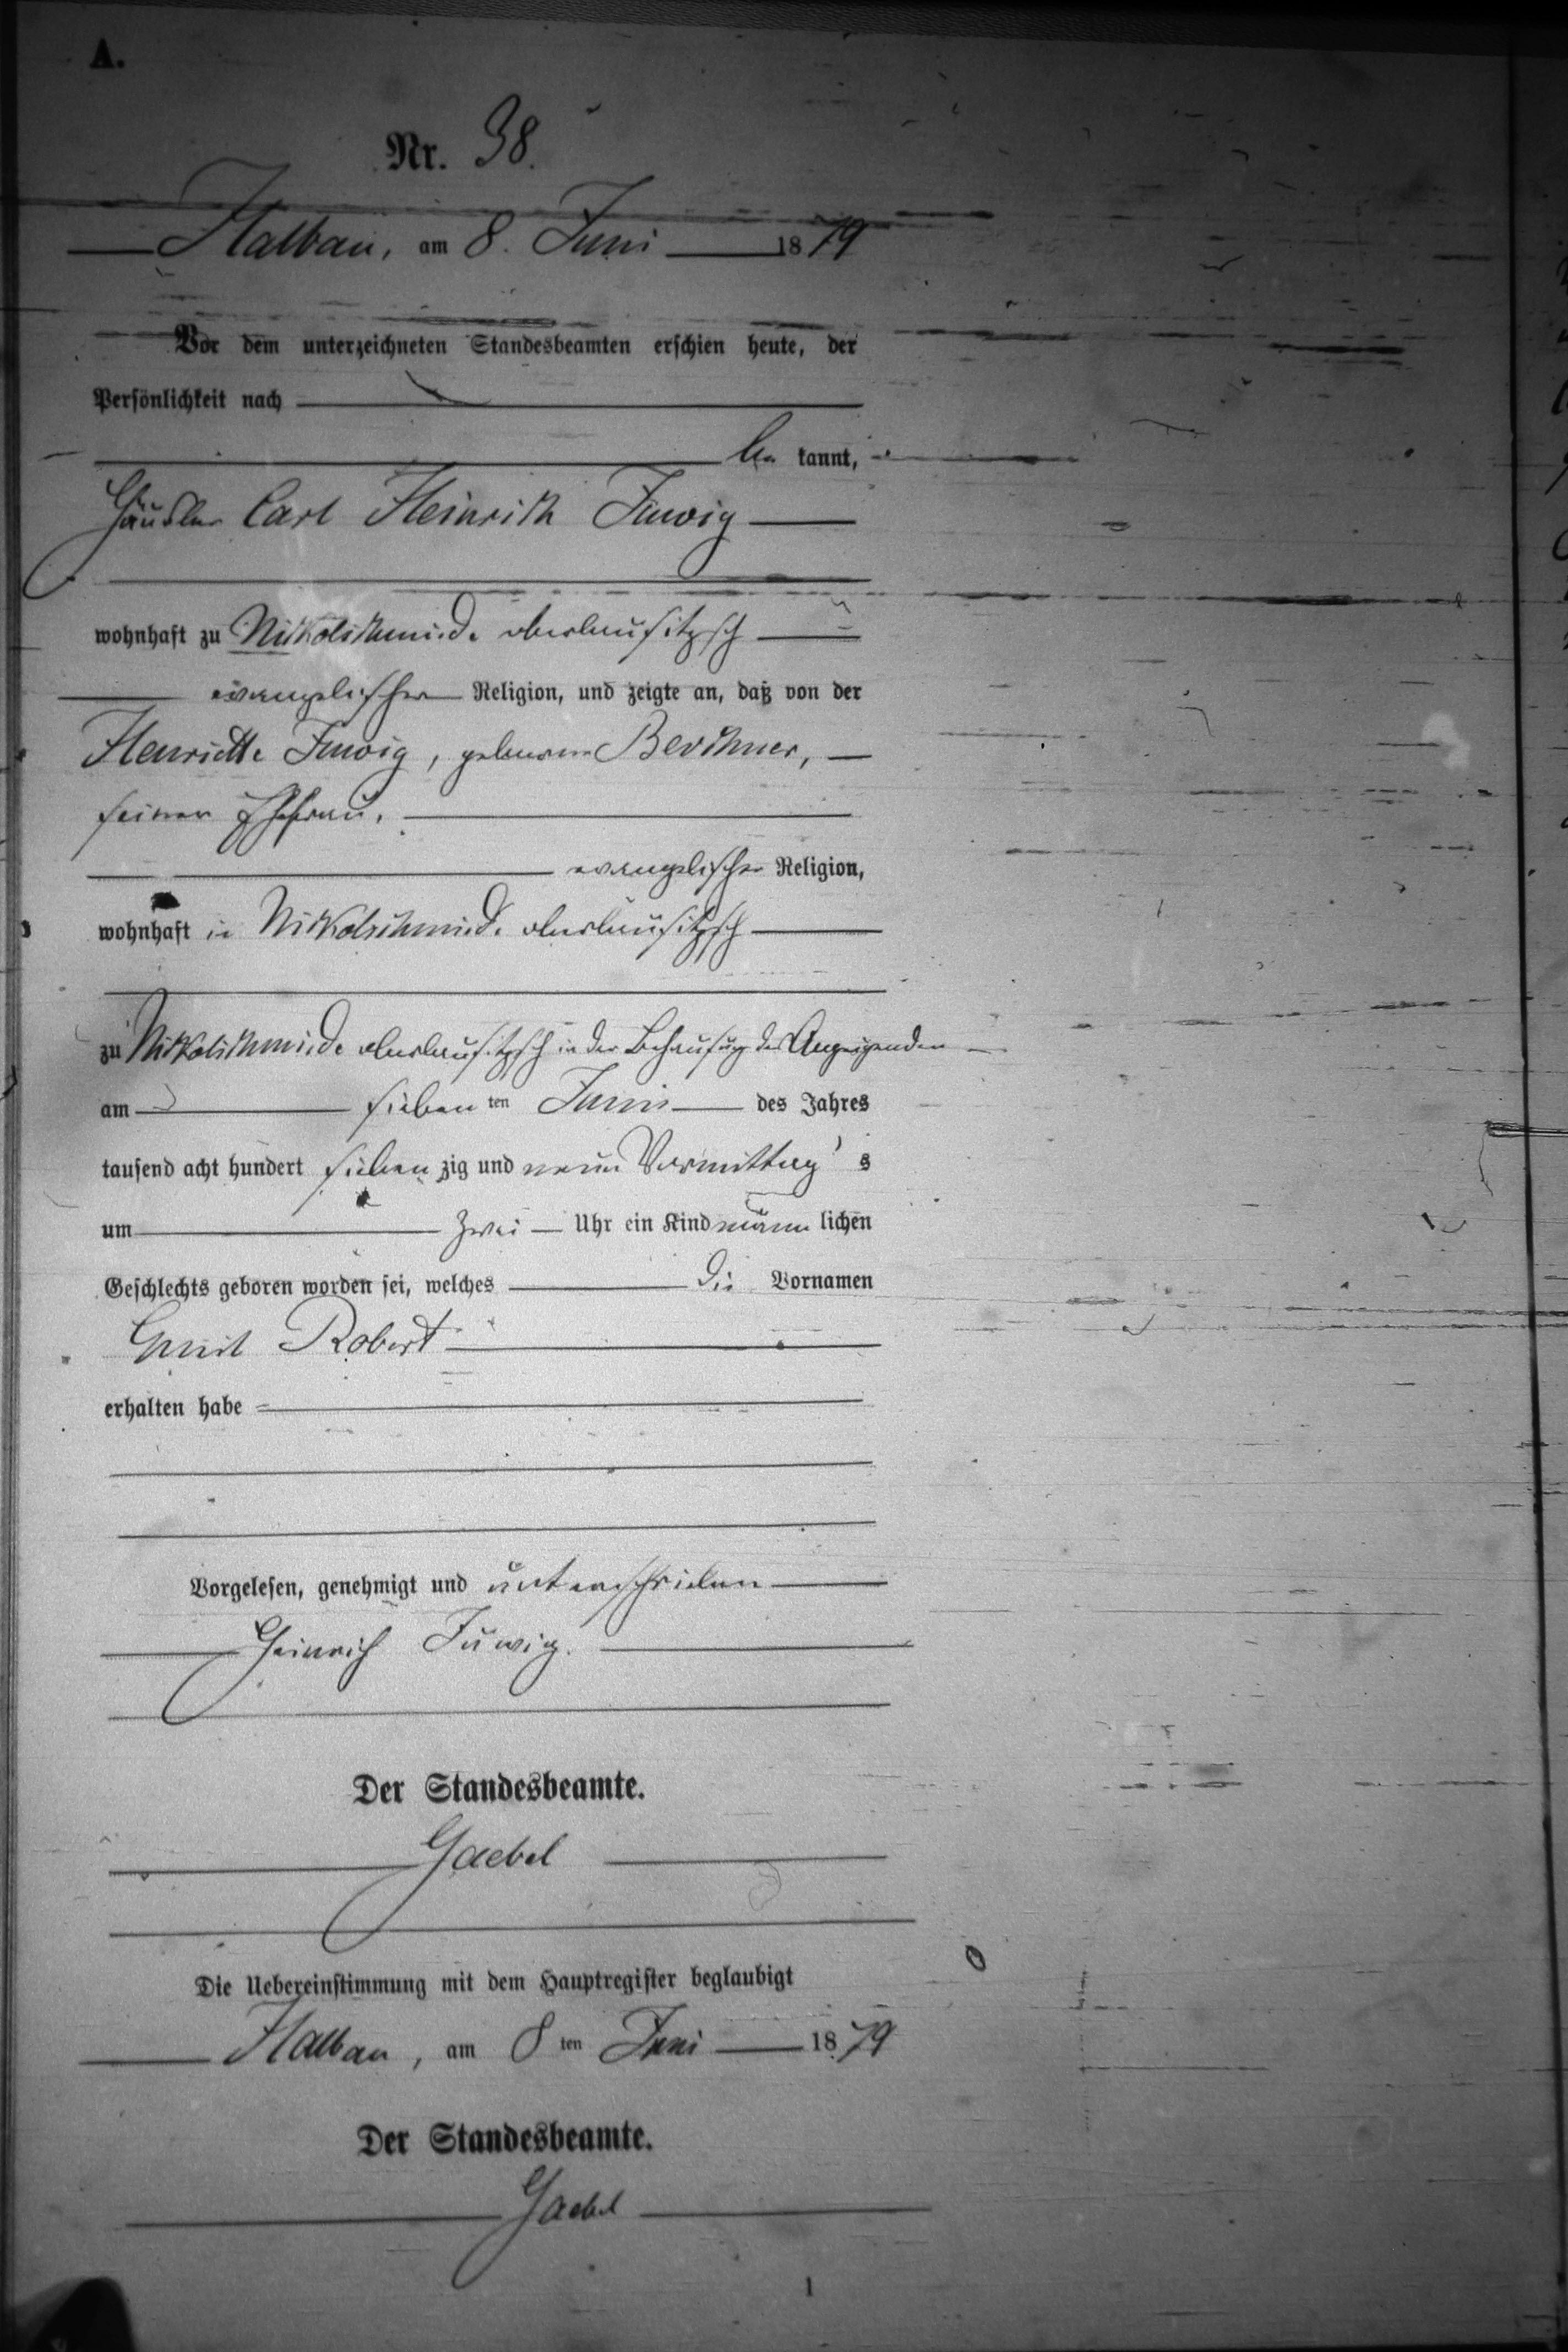 A.
Nr. 38.
Halbau, am 8. Juni 1879
Vor dem unterzeichneten Standesbeamten erschien heute, der
Persönlichkeit nach
be kannt,
Häusler Carl Heinrich Juwig
wohnhaft zu Nikolschmiede oberlausitzsch
evangelischer Religion, und zeigte an, daß von der
Henriette Juwig, geborene
seiner Ehefrau,
evangelischer Religion,
wohnhaft in Nikolschmiede oberlausitzsch
zu Nikolschmiede oberlausitzsch in der Behausung des Anzeigenden
am sieben ten Juni des Jahres
tausend acht hundert sieben zig und neun Vormittag s
um zwei Uhr ein Kind männ lichen
Geschlechts geboren worden sei, welches die Vornamen
Robert
erhalten habe
Vorgelesen, genehmigt und unterschrieben
Heinrich Juwig.
Der Standesbeamte.
Gaebel
Die Uebereinstimmung mit dem Hauptregister beglaubigt
Halbau, am 8 ten Juni 1879
Der Standesbeamte.
Gaebel
1